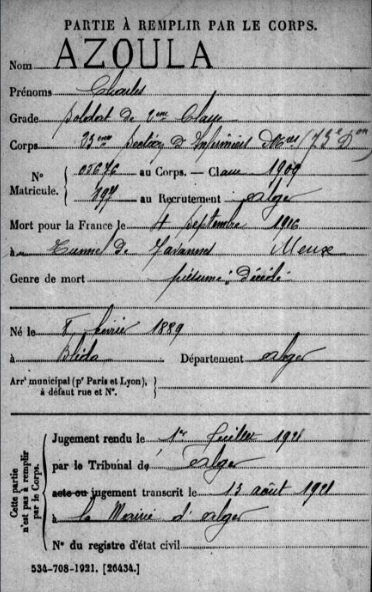 PARTIE À REMPLIR PAR LE CORPS.
Nom AZOULA
Prénoms Charles
Grade Soldat de 2ème Classe
Corps 23ème Section d'Infirmiers Mres (73e Don)
Nº Matricule. { 05676 au Corps. — Classe 1909
397 au Recrutement Alger
Mort pour la France le 4 Septembre 1916
à Tunnel de Tavannes Meuse
Genre de mort : Décédé
Né le 8 février 1889
à Blida Département Alger
Arrt municipal (pr Paris et Lyon), à défaut rue et Nº.
Cette partie n'est pas à remplir par le Corps.
Jugement rendu le 1er Juillet 1921
par le Tribunal de Alger
acte ou jugement transcrit le 13 août 1921
à la Mairie d'Alger
Nº du registre d'état civil
534-708-1921. [26434.]